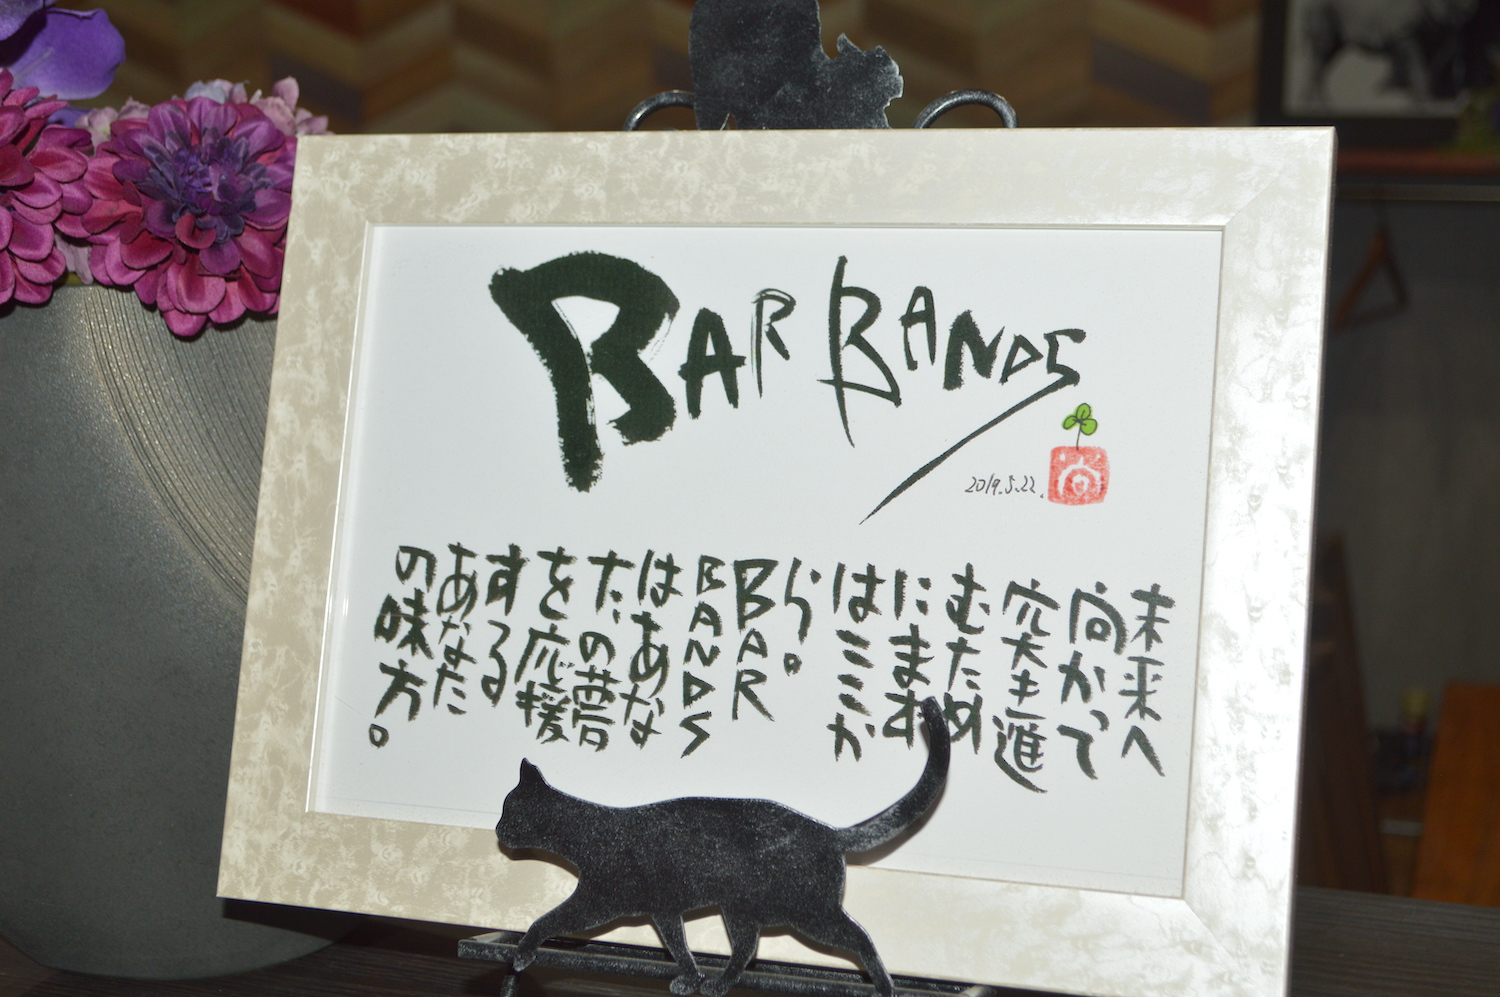 BAR BANDS
2019.5.22.
未来へ
向かって
突き進
むため
にまず
はここか
ら。
BAR
BANDS
はあな
たの夢
を応援
する
あなた
の味方。